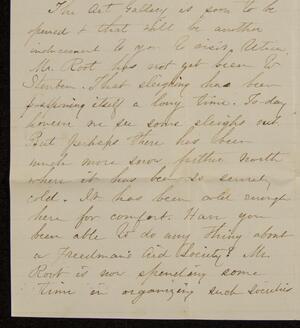 The Art Gallery is soon to be
opened & that will be another
inducement to you to visit Utica.
Mr. Root has not yet been to
Steuben. That sleighing has been
itself a long time. To-day
however we see some sleighs out.
But perhaps there has been
much more snow further north
where it has been so
cold. It has been cold enough
here for comfort. Have you
been able to do any thing about
a Freedman's Aid Society? Mr.
Root is now spending some
time in organizing such societies